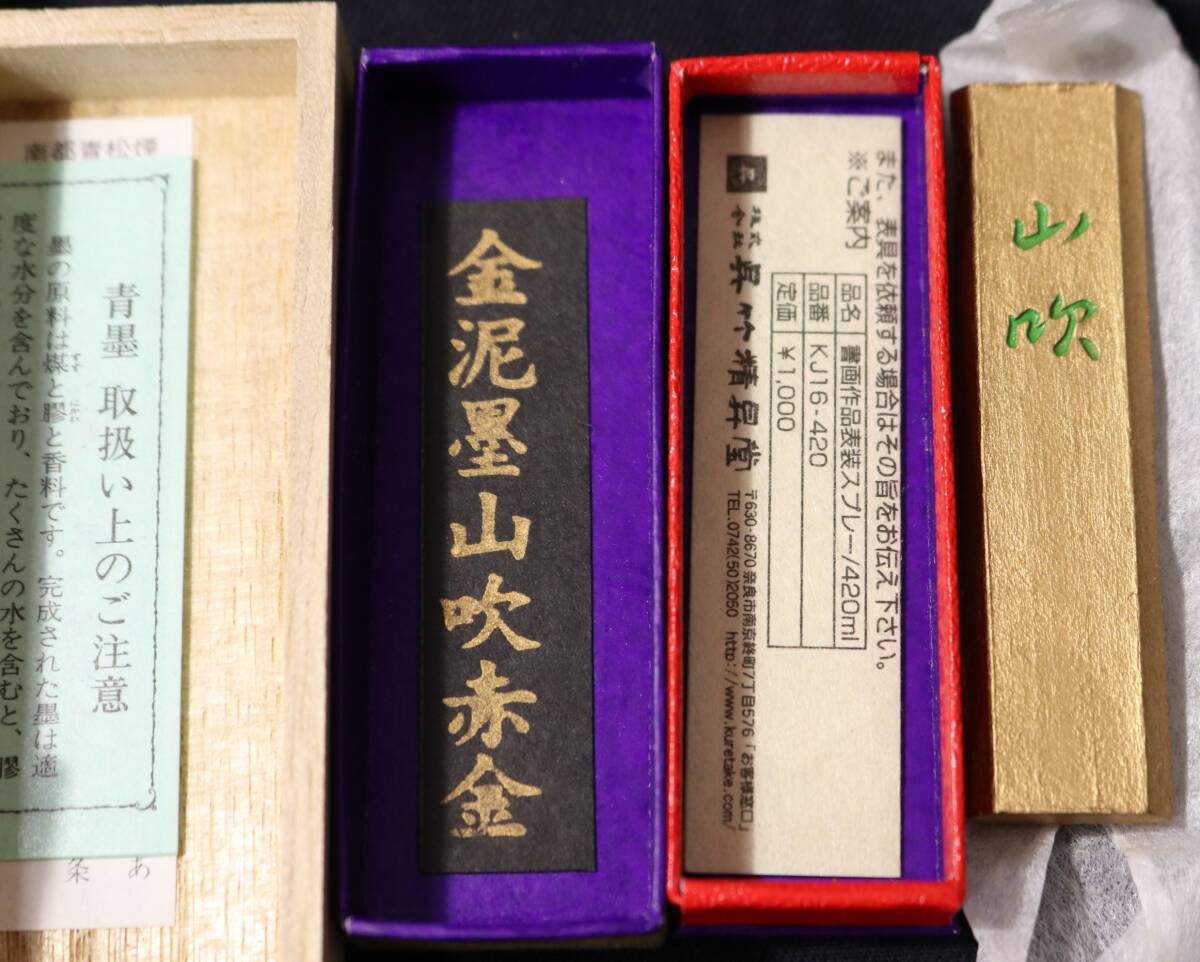 南都青松煙
青墨 取扱い上のご注意
墨の原料は煤と膠と香料です。完成された墨は適
度な水分を含んでおり、たくさんの水を含むと、膠
あ
条
金泥墨山吹赤金
また、表具を依頼する場合はその旨をお伝え下さい。
※ご案内
品名 書画作品表装スプレー/420ml
品番 KJ16-420
定価 ¥1,000
株式会社 呉竹精昇堂
〒630-8670 奈良市南京終町7丁目576「お客様窓口」
TEL.0742(50)2050 http://www.kuretake.com/
山吹